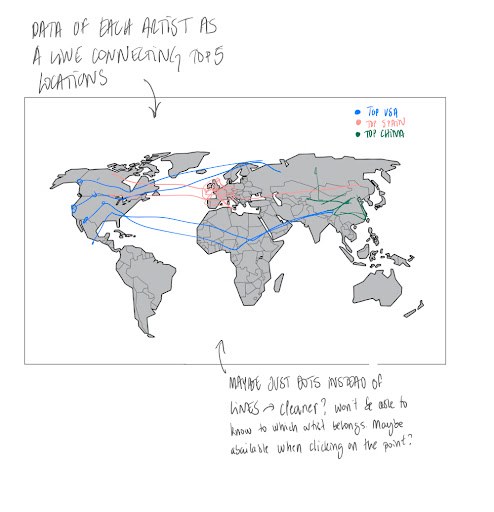 DATA OF EACH ARTIST AS
A LINE CONNECTING TOP 5
LOCATIONS
TOP USA
TOP SPAIN
TOP CHINA
MAYBE JUST DOTS INSTEAD OF
LINES → cleaner? won't be able to
know to which artist belongs. Maybe
available when clicking on the point?